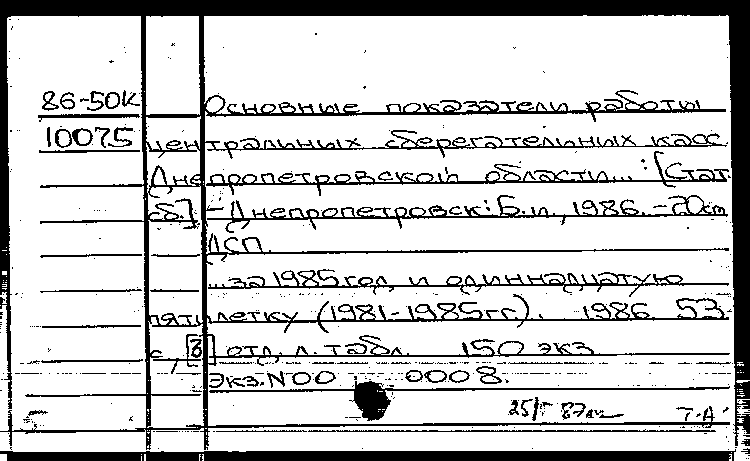 86-50К Основные показатели работы
10075 центральных сберегательных касс
Днепропетровской области... : [Стат.
сб.] – Днепропетровск: Б.и., 1986. – 20см
ДСП.
...за 1985 год и одиннадцатую
пятилетку (1981-1985гг). 1986. 53
с., [3] отд. л. табл. 150 экз.
Экз.N00 0008.
Т-А